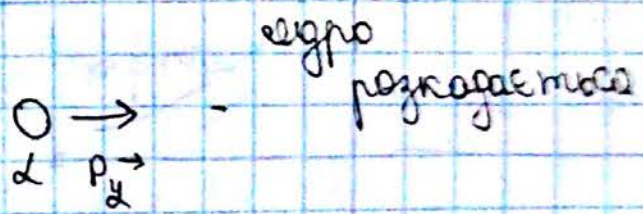 ядро
розкадається
α P⃗α